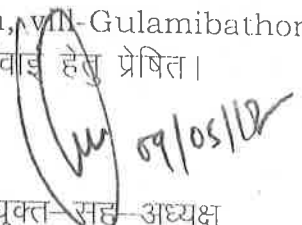 vill-Gulamibathor
हेतु प्रेषित।
09/05/18
युक्त-सह-अध्यक्ष